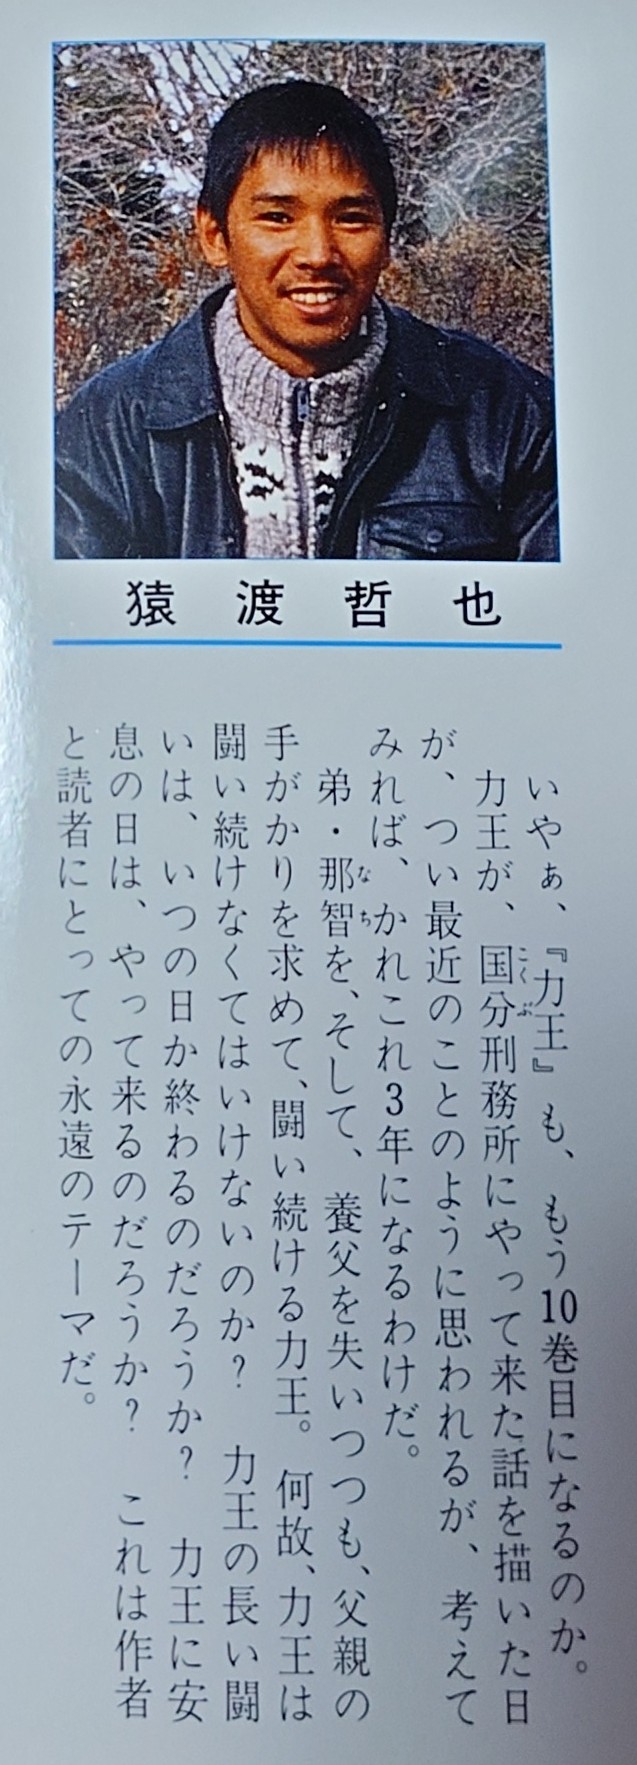 猿渡哲也
いやぁ、『力王』も、もう10巻目になるのか。
力王が、国分刑務所にやって来た話を描いた日
が、つい最近のことのように思われるが、考えて
みれば、かれこれ3年になるわけだ。
弟・那智を、そして、養父を失いつつも、父親の
手がかりを求めて、闘い続ける力王。何故、力王は
闘い続けなくてはいけないのか？　力王の長い闘
いは、いつの日か終わるのだろうか？　力王に安
息の日は、やって来るのだろうか？　これは作者
と読者にとっての永遠のテーマだ。
こくぶ
なち